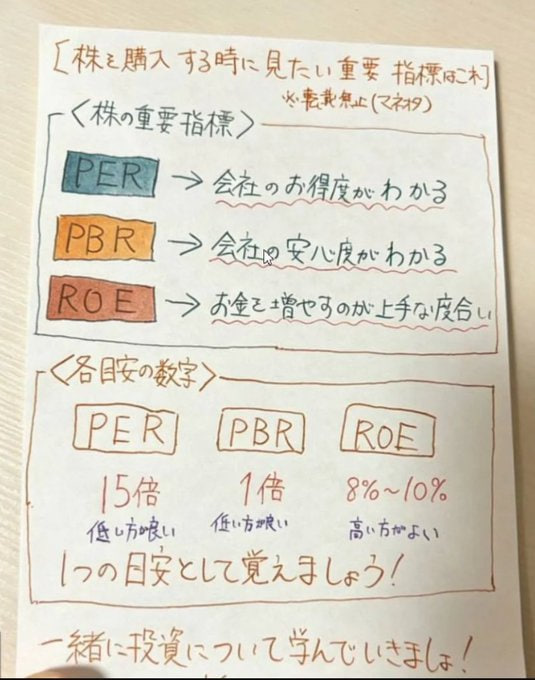 [株を購入する時に見たい重要指標はこれ]
※転載禁止(マネオタ)
〈株の重要指標〉
PER → 会社のお得度がわかる
PBR → 会社の安心度がわかる
ROE → お金を増やすのが上手な度合い
〈各目安の数字〉
PER PBR ROE
15倍 1倍 8%〜10%
低い方が良い 低い方が良い 高い方がよい
1つの目安として覚えましょう!
一緒に投資について学んでいきましょ!